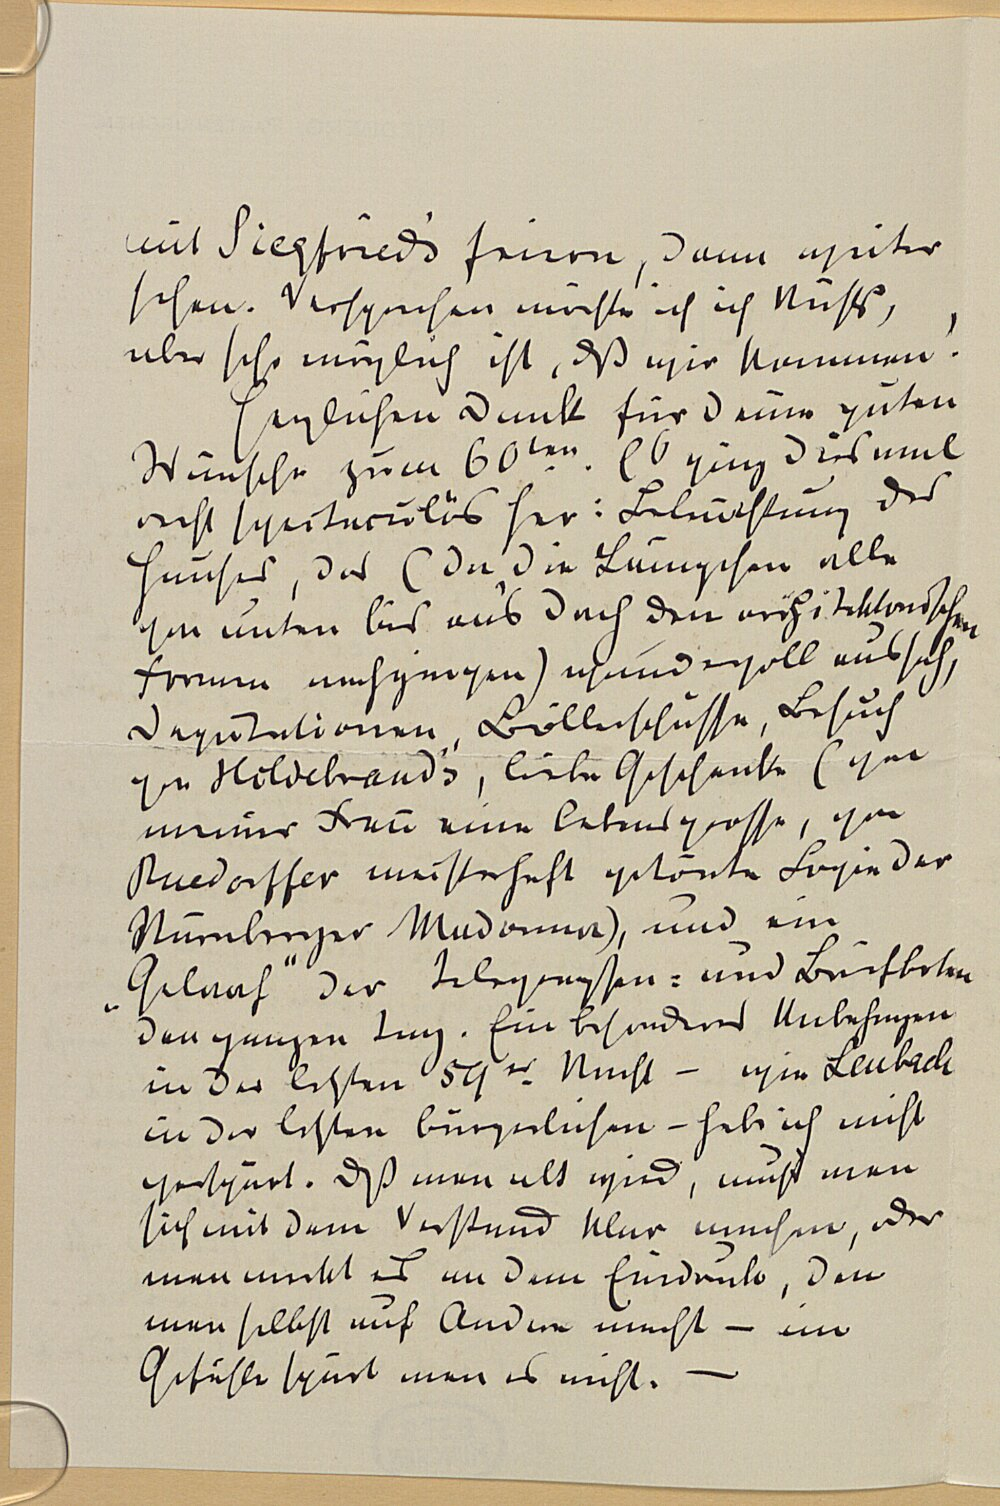 mit Siegfried's feiern, dann weiter
sehen. Versprechen möchte ich ich Nichts,
aber sehr möglich ist, dß wir kommen.
Herzlichen Dank für Deine guten
Wünsche zum 60ten. Es ging diesmal
recht spectaculös her: Beleuchtung des
Hauses, das (da die Lämpchen alle
von unten bis an's Dach den architektonischen
Formen nachgingen) wundervoll aussah,
Deputationen, Böllerschüsse, Besuch
von Hildebrand's, liebe Geschenke (von
meiner Frau eine lebensgrosse, von
Ruedorffer meisterhaft getönte Copie der
Nürnberger Madonna), und ein
„Gelauf“ der Telegraphen= und Briefboten
den ganzen Tag. Ein besonderes Unbehagen
in der letzten 59er Nacht – wie Lenbach
in der letzten bürgerlichen – hab ich nicht
verspürt. Dß man alt wird, muß man
sich mit dem Verstand klar machen, oder
man merkt es an dem Eindruck, den
man selbst auf Andere macht – im
Gefühle spürt man es nicht. —